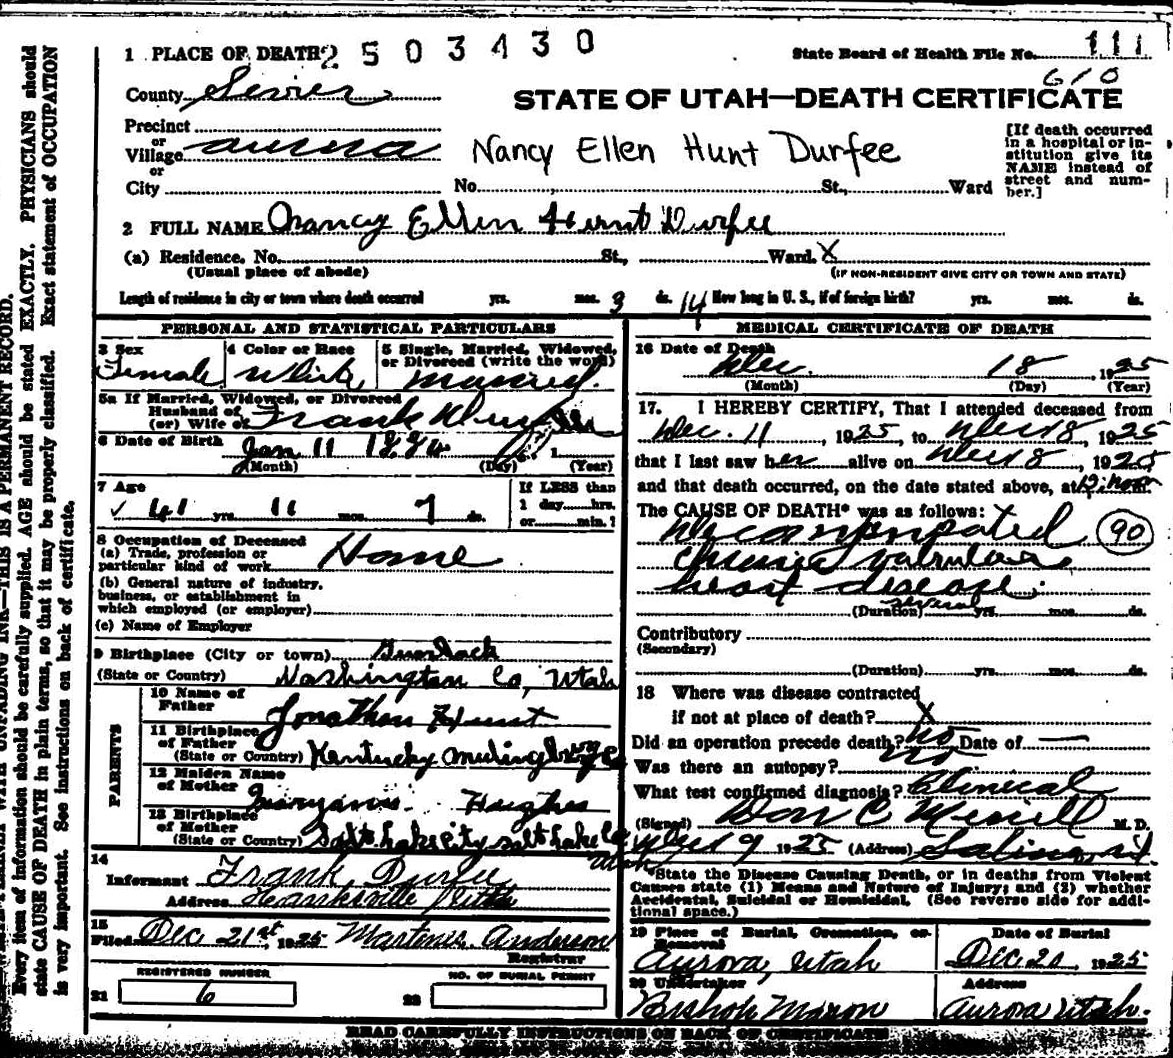 1 PLACE OF DEATH 2503430 State Board of Health File No. 111
610
County Sevier STATE OF UTAH—DEATH CERTIFICATE
Precinct
or
Village aurora Nancy Ellen Hunt Durfee
or
City No. St., Ward
[If death occurred
in a hospital or in-
stitution give its
NAME instead of
street and num-
ber.]
2 FULL NAME Nancy Ellen Hunt Durfee
(a) Residence, No. St., Ward. X
(Usual place of abode) (IF NON-RESIDENT GIVE CITY OR TOWN AND STATE)
Length of residence in city or town where death occurred yrs. mos. 3 ds. 14 How long in U. S., if of foreign birth? yrs. mos. ds.
PERSONAL AND STATISTICAL PARTICULARS
3 Sex 4 Color or Race 5 Single, Married, Widowed,
or Divorced (write the word)
Female White Married.
5a If Married, Widowed, or Divorced
Husband of
(or) Wife of Frank
6 Date of Birth Jan 11
(Month) (Day) (Year)
7 Age If LESS than
1 day hrs.
or min.?
61 yrs. 11 mos. 7 ds.
8 Occupation of Deceased
(a) Trade, profession or
particular kind of work Home
(b) General nature of industry,
business, or establishment in
which employed (or employer)
(c) Name of Employer
9 Birthplace (City or town)
(State or Country) Washington Co, Utah
PARENTS
10 Name of
Father Jonathan Hunt
11 Birthplace
of Father
(State or Country) Kentucky
12 Maiden Name
of Mother Hughes
13 Birthplace
of Mother
(State or Country) Salt Lake City Salt Lake Co
Utah
14
Informant Frank Durfee
Address Hanksville Utah
15
Filed Dec 21st, 1925 Martinus Anderson
Registrar
REGISTERED NUMBER NO. OF BURIAL PERMIT
21 6 22
MEDICAL CERTIFICATE OF DEATH
16 Date of Death
Dec. 18 1925
(Month) (Day) (Year)
17. I HEREBY CERTIFY, That I attended deceased from
Dec. 11, 1925, to Dec 18, 1925
that I last saw her alive on Dec 18, 1925
and that death occurred, on the date stated above, at
The CAUSE OF DEATH* was as follows:
Decompensated
90
chronic valvular
heart disease.
(Duration) several yrs. mos. ds.
Contributory
(Secondary)
(Duration) yrs. mos. ds.
18 Where was disease contracted
if not at place of death? X
Did an operation precede death? No Date of —
Was there an autopsy? No
What test confirmed diagnosis? Clinical
(Signed) Don C Merrill M. D.
1925 (Address) Salina, Ut.
*State the Disease Causing Death, or in deaths from Violent
Causes state (1) Means and Nature of Injury; and (2) whether
Accidental, Suicidal or Homicidal. (See reverse side for addi-
tional space.)
19 Place of Burial, Cremation, or Date of Burial
Removal
Aurora, Utah Dec. 20, 1925
20 Undertaker Address
Bishop Mason Aurora Utah.
READ CAREFULLY INSTRUCTIONS ON BACK OF CERTIFICATE
THIS IS A PERMANENT RECORD.
Every item of information should be carefully supplied. AGE should be stated EXACTLY. PHYSICIANS should
state CAUSE OF DEATH in plain terms, so that it may be properly classified. Exact statement of OCCUPATION
is very important. See instructions on back of certificate.